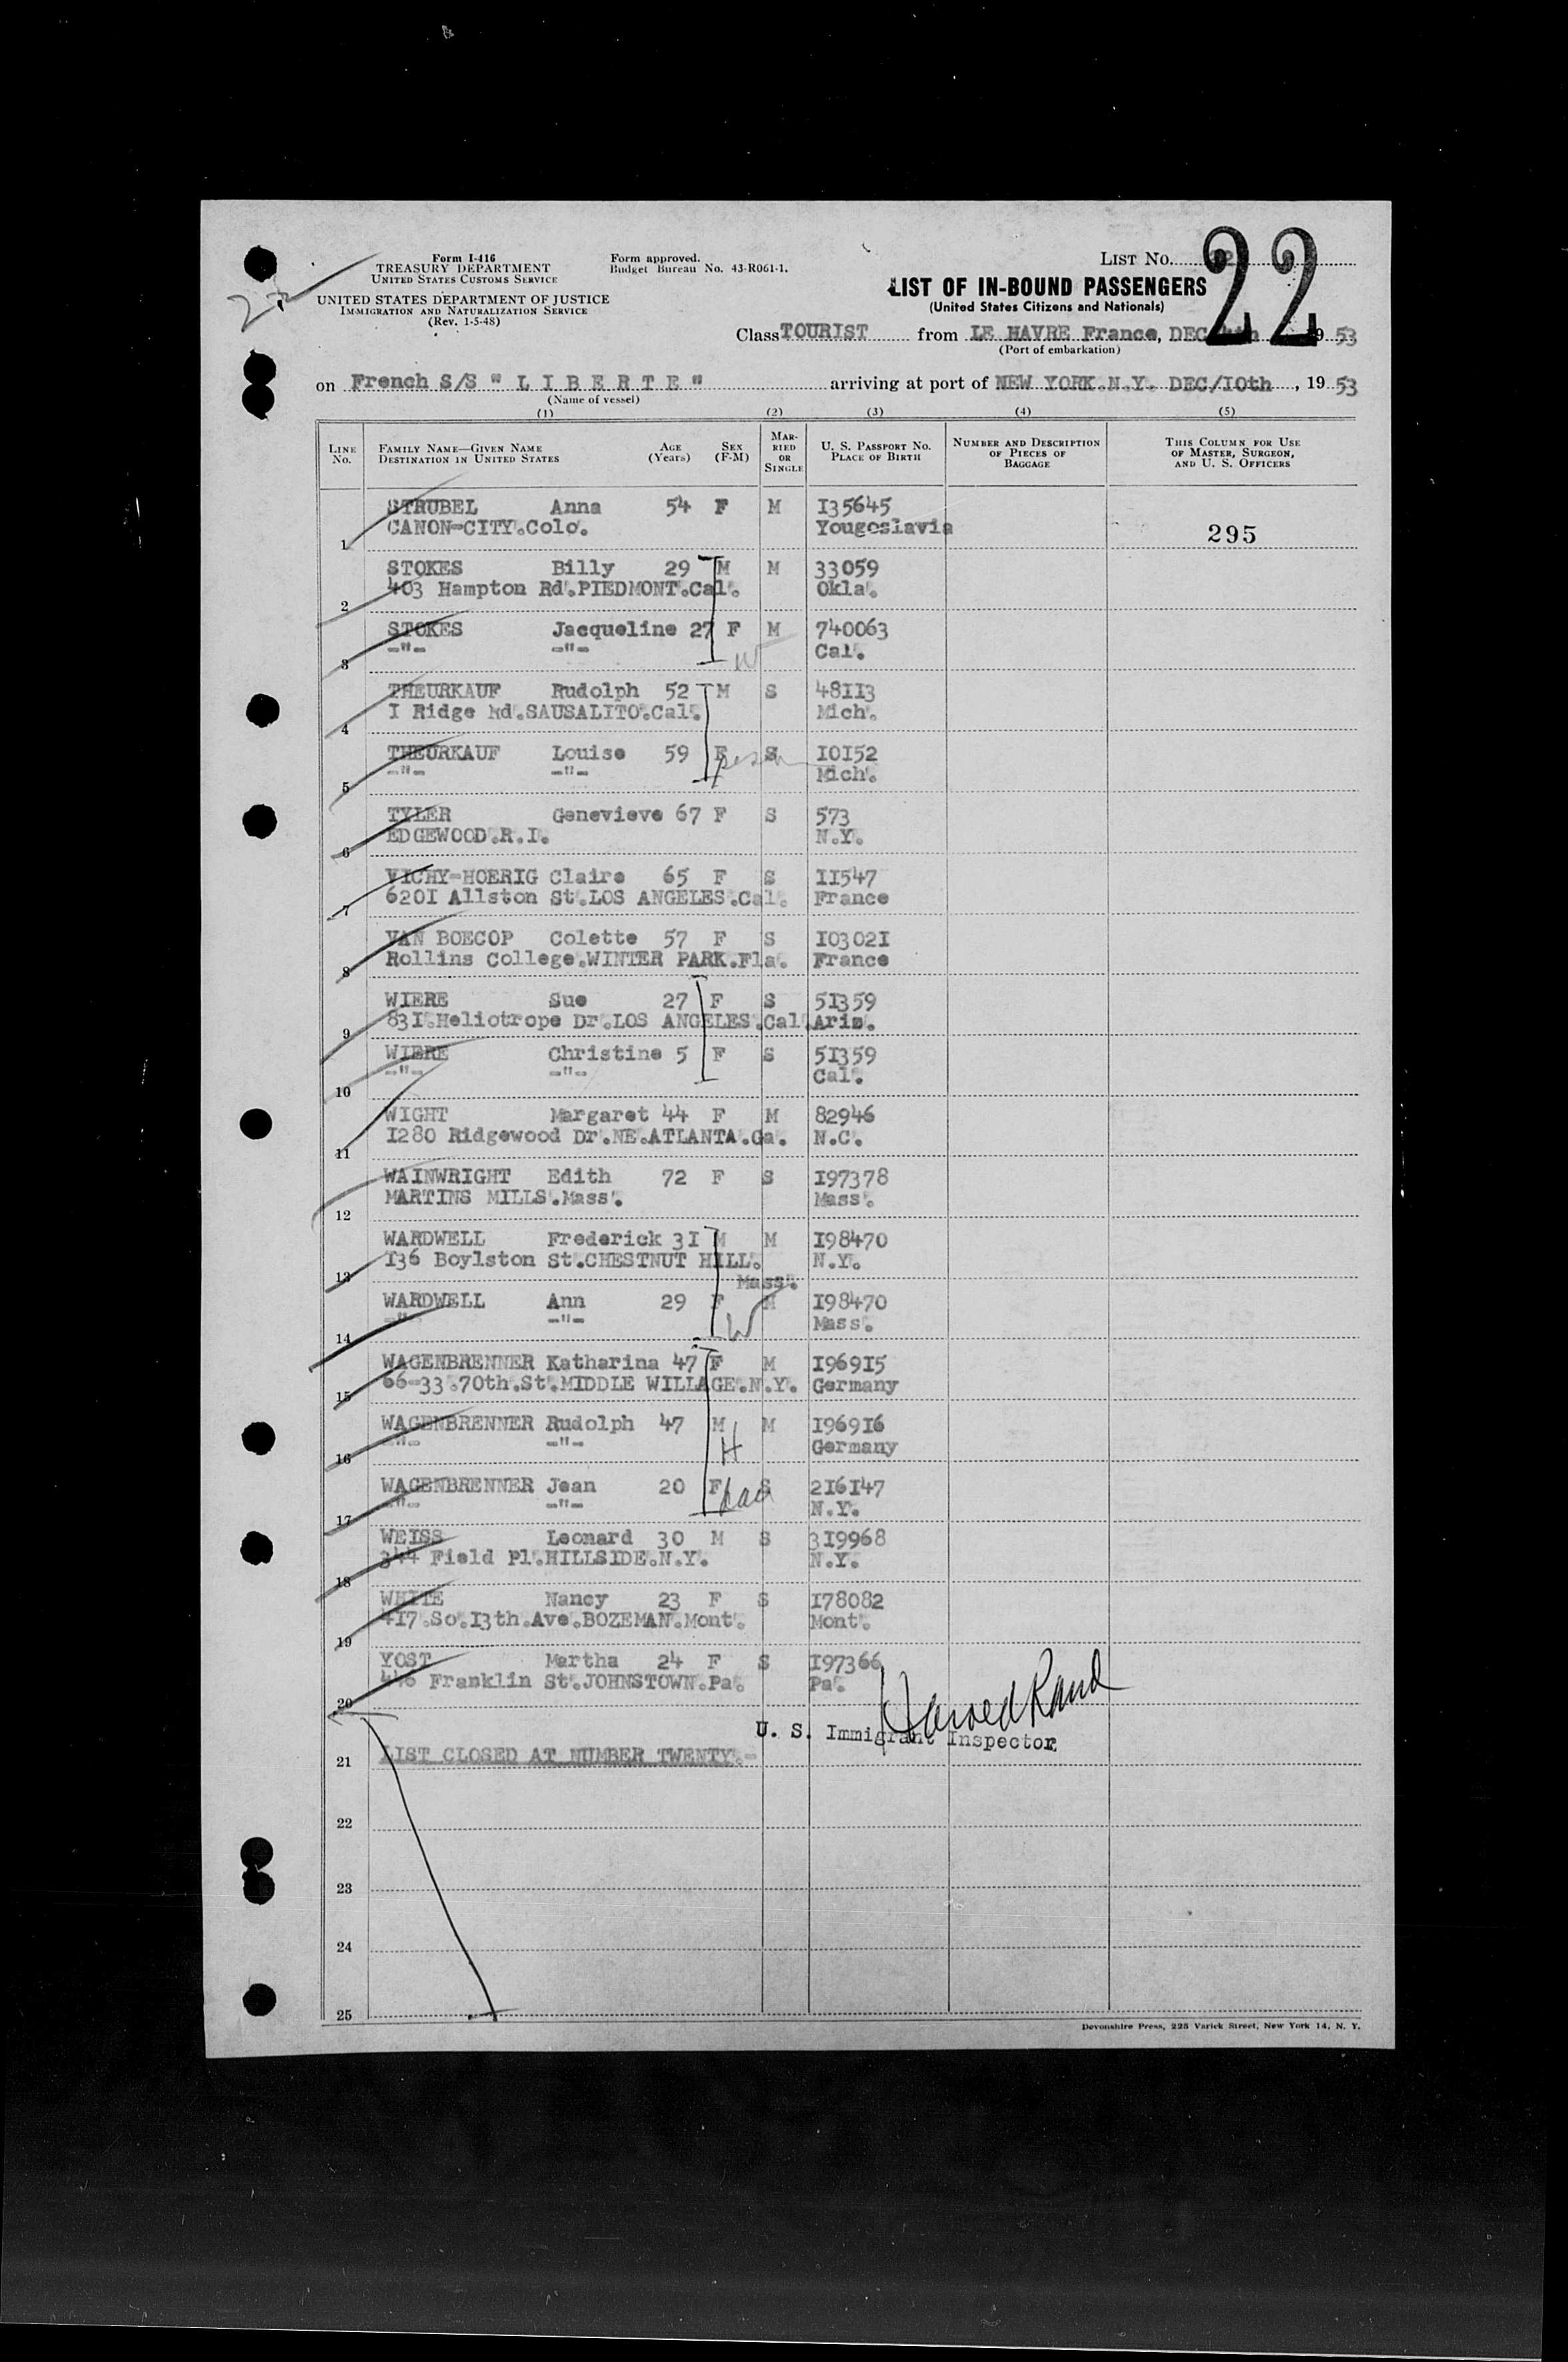 Form I-416
TREASURY DEPARTMENT
UNITED STATES CUSTOMS SERVICE
UNITED STATES DEPARTMENT OF JUSTICE
IMMIGRATION AND NATURALIZATION SERVICE
(Rev. 1-5-48)
Form approved.
Budget Bureau No. 43-R061-1.
LIST NO.
22
LIST OF IN-BOUND PASSENGERS
(United States Citizens and Nationals)
Class TOURIST from LE HAVRE France, DEC 19 53
(Port of embarkation)
on French S/S " L I B E R T E " arriving at port of NEW YORK.N.Y. DEC/I0th , 19 53
(Name of vessel)
(1) (2) (3) (4) (5)
LINE NO.
FAMILY NAME—GIVEN NAME
DESTINATION IN UNITED STATES
AGE (Years)
SEX (F-M)
MARRIED OR SINGLE
U. S. PASSPORT NO.
PLACE OF BIRTH
NUMBER AND DESCRIPTION OF PIECES OF BAGGAGE
THIS COLUMN FOR USE OF MASTER, SURGEON, AND U. S. OFFICERS
STRUBEL Anna 54 F M I35645
1 CANON-CITY.Colo. Yougoslavia 295
STOKES Billy 29 M M 33059
2 403 Hampton Rd.PIEDMONT.Cal. Okla.
STOKES Jacqueline 27 F M 740063
3 -"- -"- W Cal.
THEURKAUF Rudolph 52 M S 48II3
4 I Ridge Rd.SAUSALITO.Cal. Mich.
THEURKAUF Louise 59 F S I0I52
5 -"- -"- Mich.
TYLER Genevieve 67 F S 573
6 EDGEWOOD.R.I. N.Y.
VICHY-HOERIG Claire 65 F S II547
7 620I Allston St.LOS ANGELES.Cal. France
VAN BOECOP Colette 57 F S I0302I
8 Rollins College.WINTER PARK.Fla. France
WIERE Sue 27 F S 5I359
9 83I.Heliotrope Dr.LOS ANGELES.Cal. Aris.
WIERE Christine 5 F S 5I359
10 -"- -"- Cal.
WIGHT Margaret 44 F M 82946
11 I280 Ridgewood Dr.NE.ATLANTA.Ga. N.C.
WAINWRIGHT Edith 72 F S I97378
12 MARTINS MILLS.Mass. Mass.
WARDWELL Frederick 3I M M I98470
13 I36 Boylston St.CHESTNUT HILL. N.Y.
Mass.
WARDWELL Ann 29 F M I98470
14 -"- -"- W Mass.
WAGENBRENNER Katharina 47 F M I969I5
15 66-33.70th.St.MIDDLE WILLAGE.N.Y. Germany
WAGENBRENNER Rudolph 47 M M I969I6
16 -"- -"- H Germany
WAGENBRENNER Jean 20 F S 2I6I47
17 -"- -"- dau N.Y.
WEISS Leonard 30 M S 3I9968
18 344 Field Pl.HILLSIDE.N.Y. N.Y.
WHITE Nancy 23 F S I78082
19 4I7.So.I3th.Ave.BOZEMAN.Mont. Mont.
YOST Martha 24 F S I97366
20 446 Franklin St.JOHNSTOWN.Pa. Pa.
Harold Rand
U. S. Immigrant Inspector
21 LIST CLOSED AT NUMBER TWENTY.-
22
23
24
25
Devonshire Press, 225 Varick Street, New York 14, N. Y.